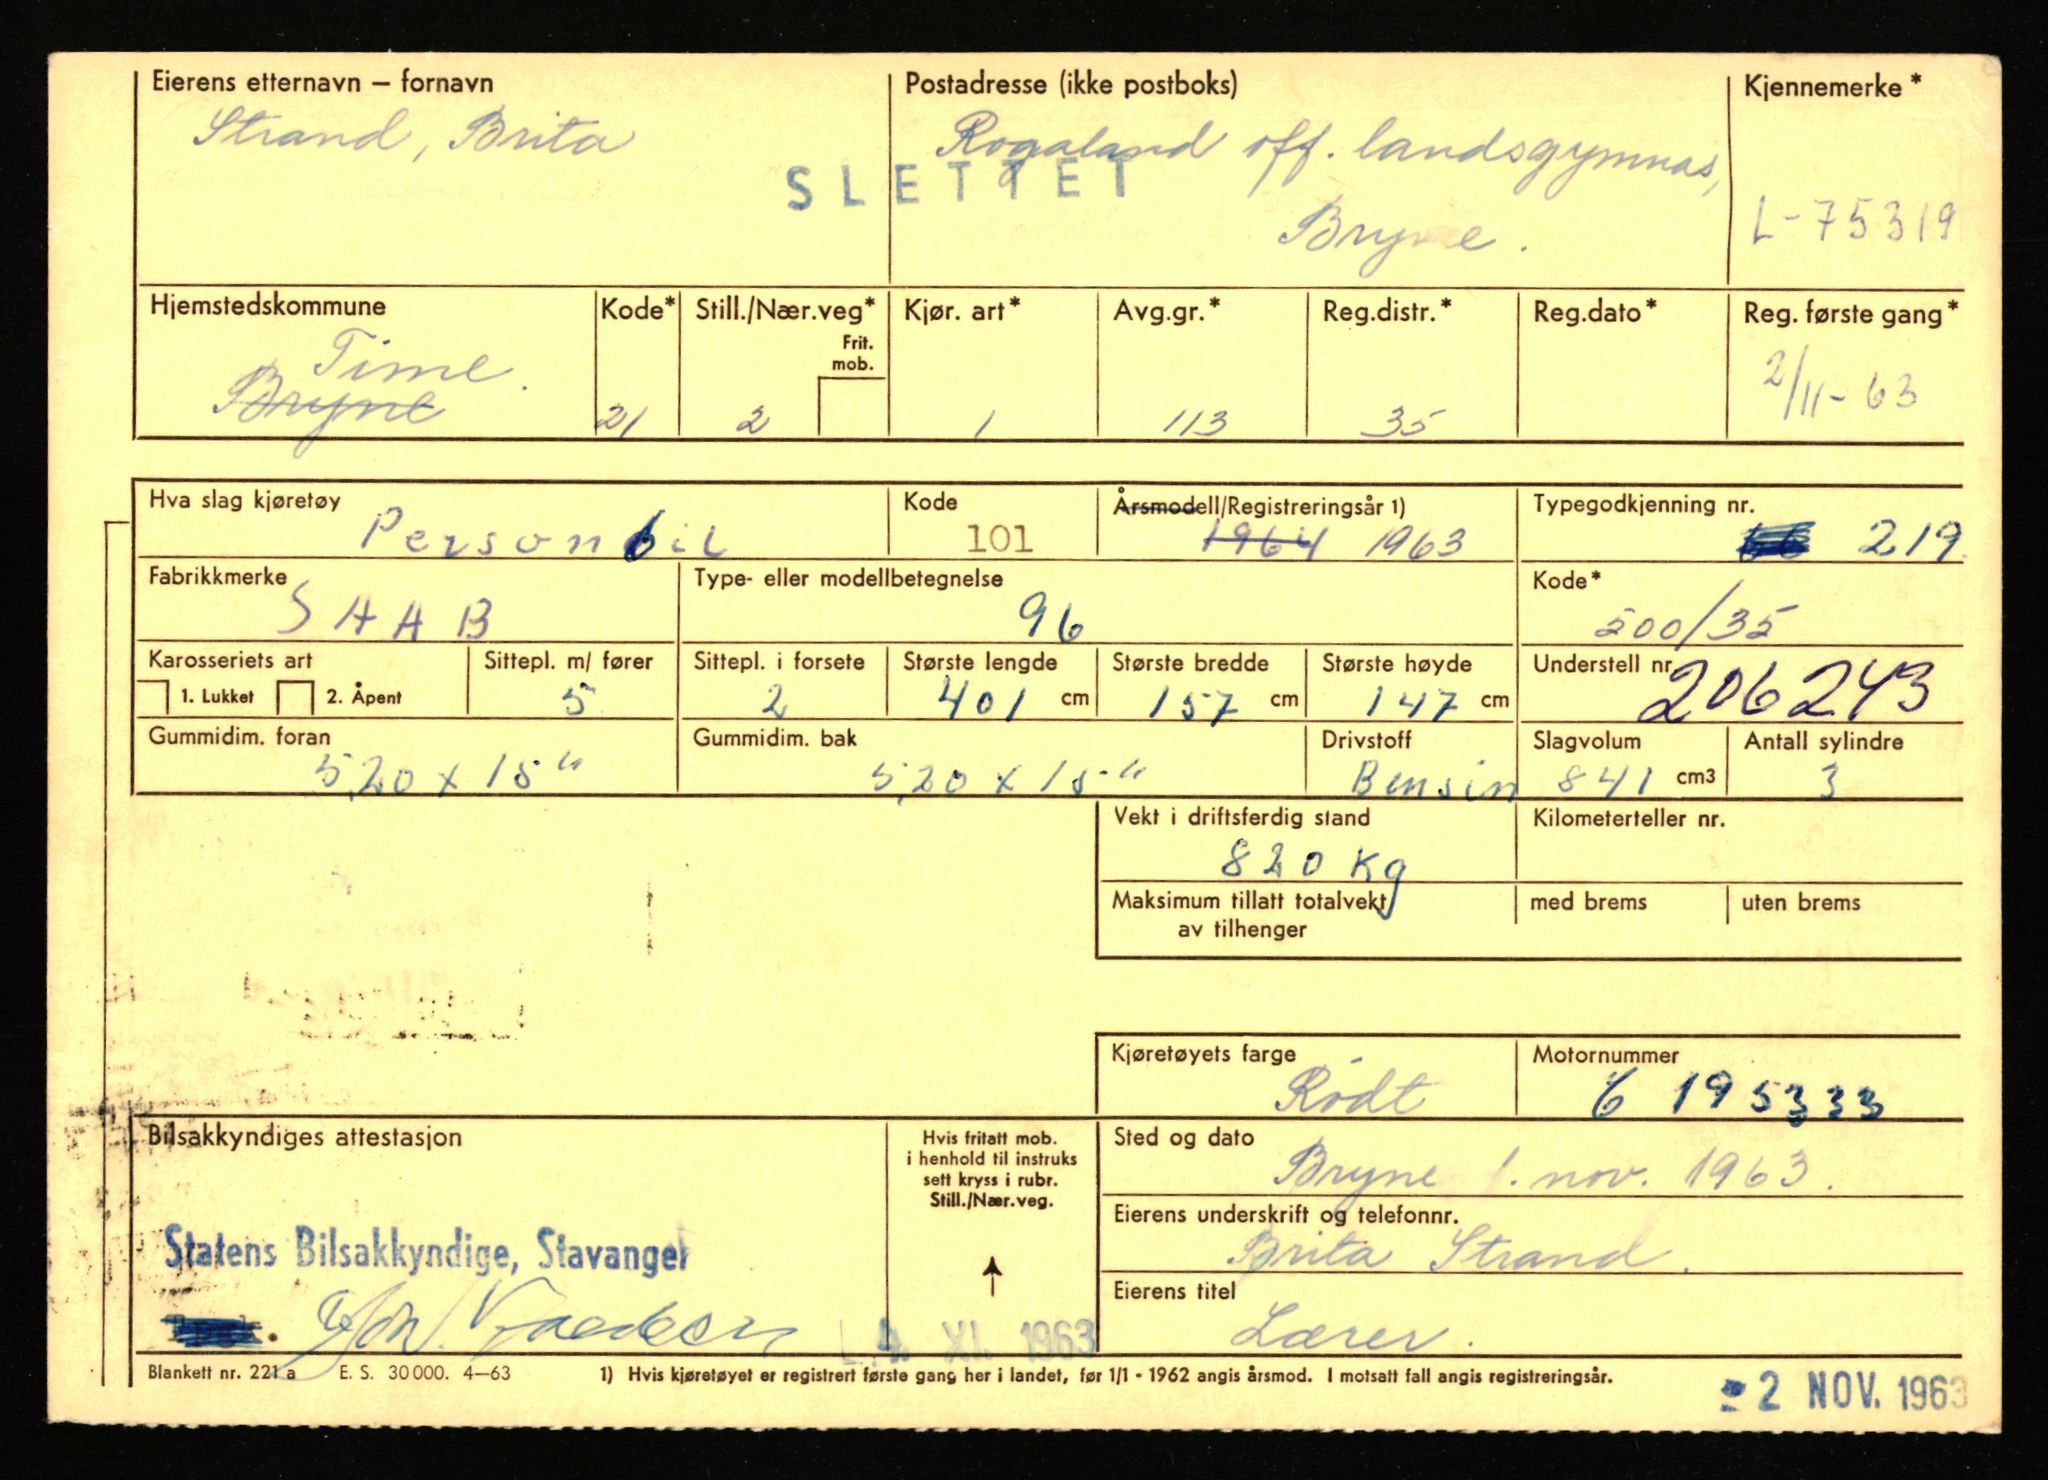 Eierens etternavn – fornavn
Strand, Brita
Postadresse (ikke postboks)
Rogaland off. landsgymnas,
Bryne.
Kjennemerke*
L-75319
SLETTET
Hjemstedskommune
Time.
Bryne
Kode*
21
Still./Nær.veg*
Frit.
mob.
2
Kjør. art*
1
Avg.gr.*
113
Reg.distr.*
35
Reg.dato*
Reg. første gang*
2/11-63
Hva slag kjøretøy
Personbil
Kode
101
Årsmodell/Registreringsår 1)
1964 1963
Typegodkjenning nr.
219
Fabrikkmerke
SAAB
Type- eller modellbetegnelse
96
Kode*
500/35
Karosseriets art
1. Lukket 2. Åpent
Sittepl. m/ fører
5
Sittepl. i forsete
2
Største lengde
401 cm
Største bredde
157 cm
Største høyde
147 cm
Understell nr.
206243
Gummidim. foran
5,20 x 15"
Gummidim. bak
5,20 x 15"
Drivstoff
Bensin
Slagvolum
841 cm3
Antall sylindre
3
Vekt i driftsferdig stand
820 Kg
Kilometerteller nr.
Maksimum tillatt totalvekt
av tilhenger
med brems
uten brems
Kjøretøyets farge
Rødt
Motornummer
6 195333
Bilsakkyndiges attestasjon
Statens Bilsakkyndige, Stavanger
Hvis fritatt mob.
i henhold til instruks
sett kryss i rubr.
Still./Nær.veg.
4. XI. 1963
Sted og dato
Bryne 1. nov. 1963.
Eierens underskrift og telefonnr.
Brita Strand.
Eierens titel
Lærer.
Blankett nr. 221 a E. S. 30 000. 4–63
1) Hvis kjøretøyet er registrert første gang her i landet, før 1/1 - 1962 angis årsmod. I motsatt fall angis registreringsår.
- 2 NOV. 1963